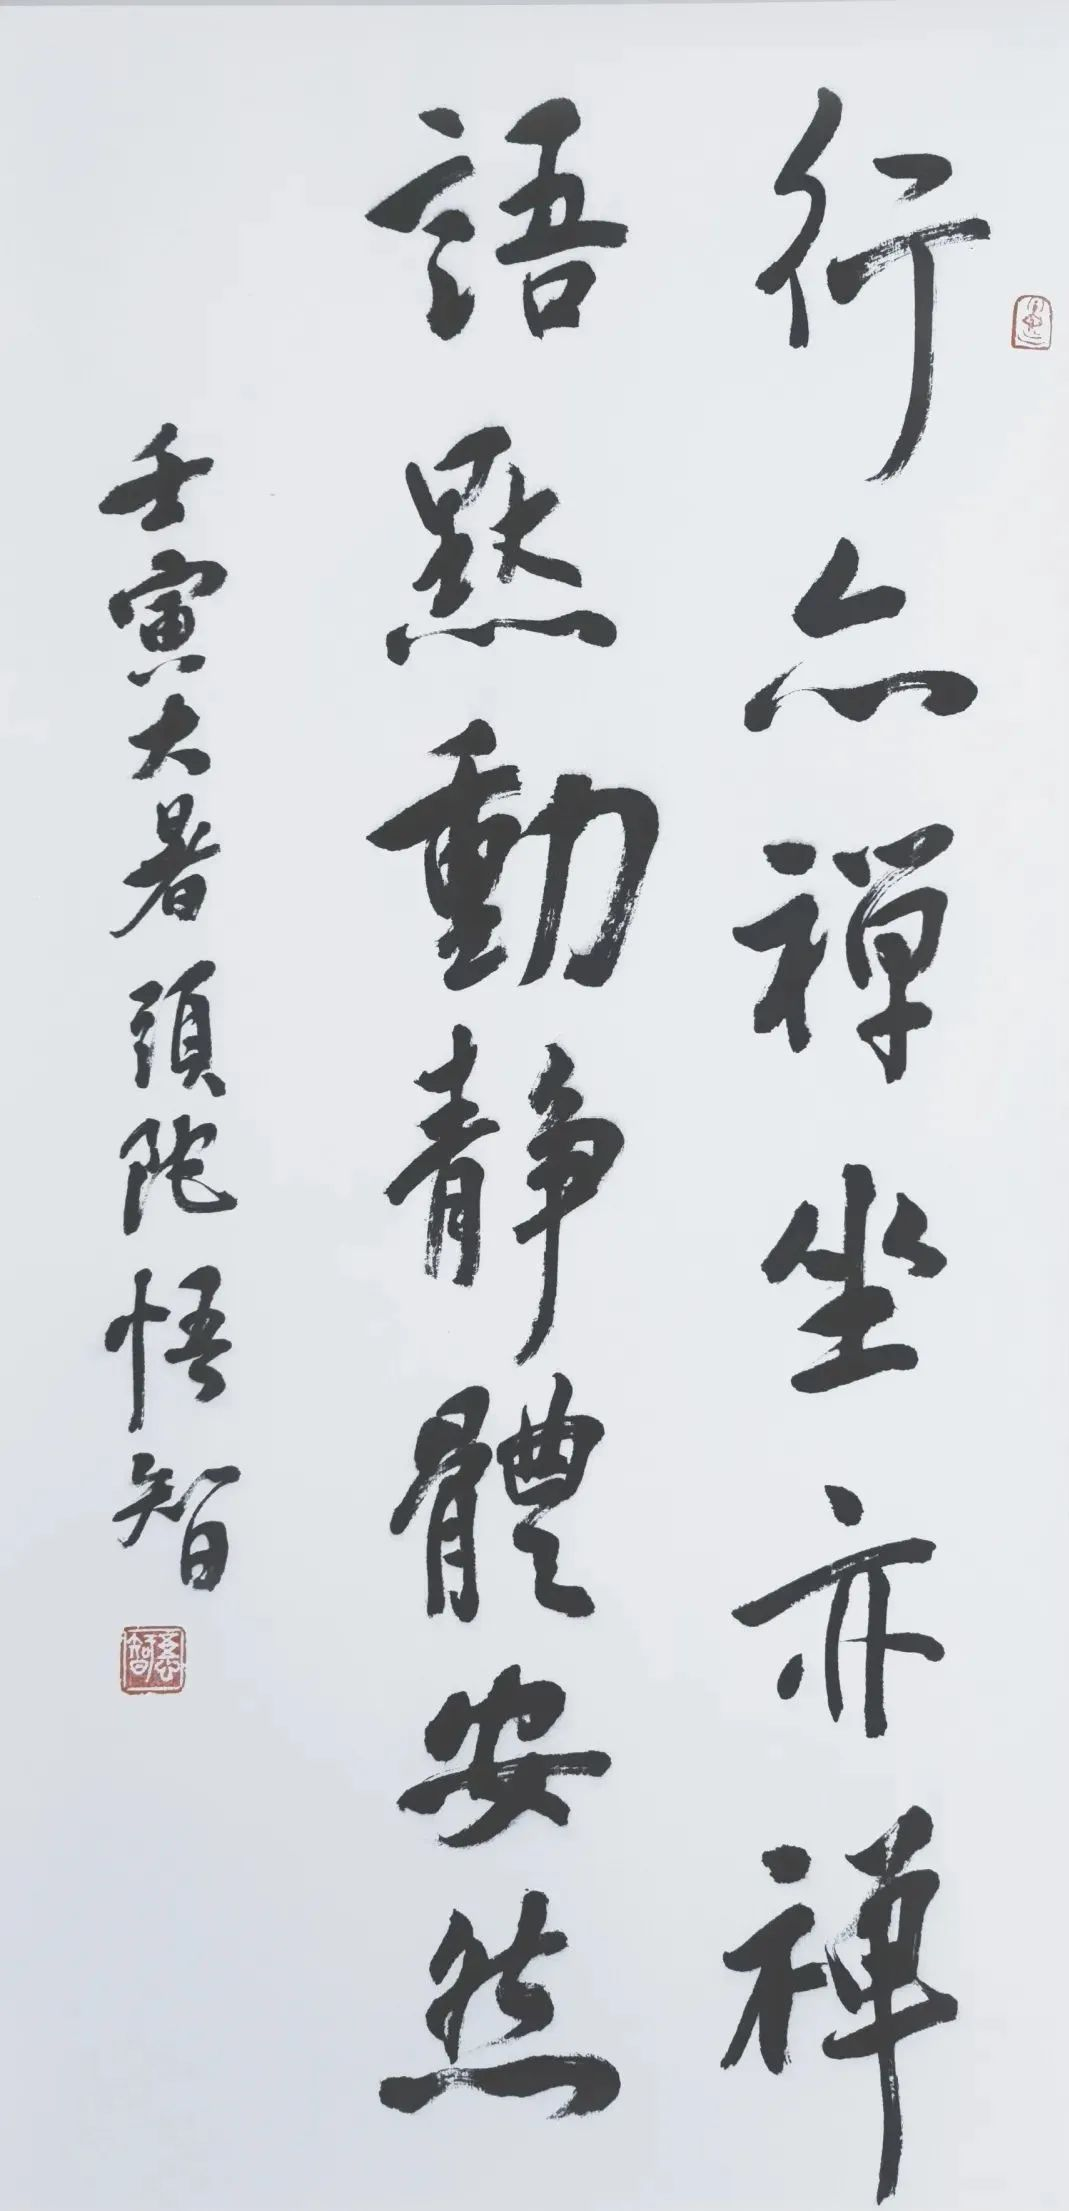 行亦禪坐亦禪
語默動靜體安然
壬寅大暑頭陀悟智